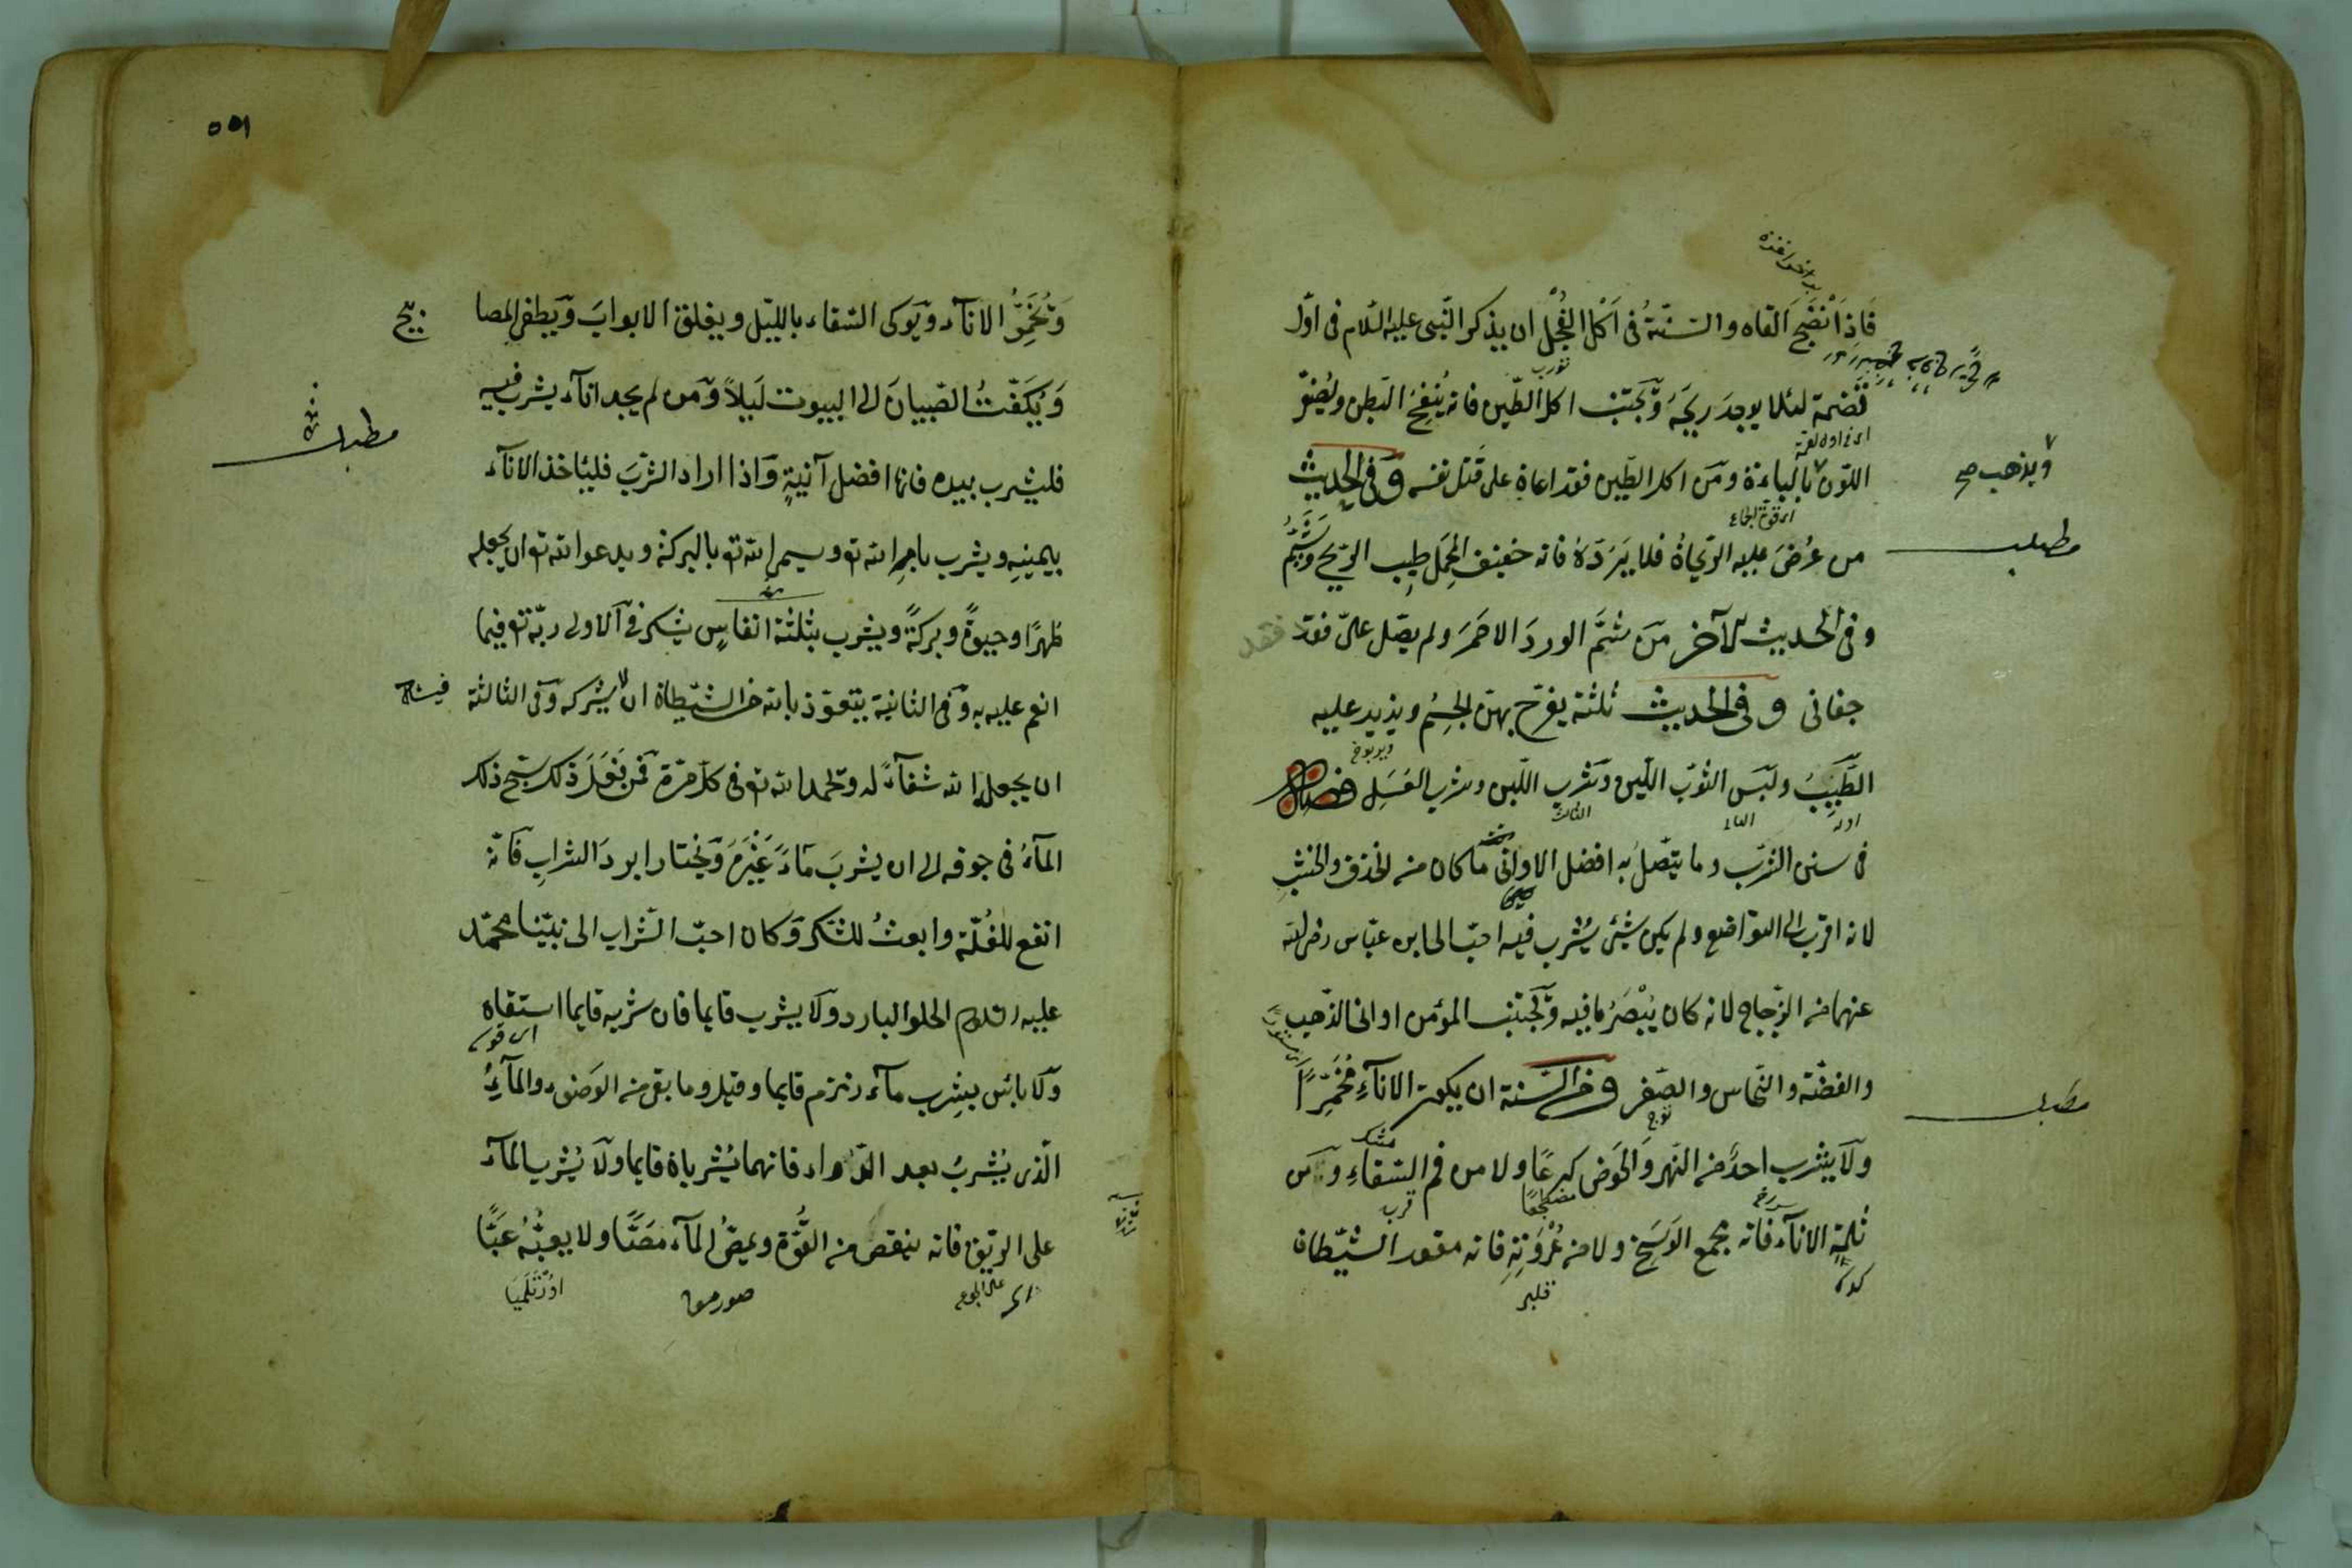 فَاِذَا نَضَجَ القاه والسّنّةُ فى اَكل الفُجْل ان يذكر النّبى عليه السّلام فى اوّل
قَضمة لئلا يوجدَ ريحَه وَيجتنب اكل الطّين فانه يُنفخ البَطن ويُصَفّر
اى فى اول لقمة
اللّون بالباءة ومَن اكل الطّين فقد اعان على قَتل نفسه وَفى الحديث
ويذهب صح
اى قوة الجماع
مطلب
من عُرضَ عليه الرّيحانُ فلا يَرَدّهُ فانه خفيف المحمَل طِيب الرّيح وَيَشُمّ
وفى الحديث الآخر مَن شمَّ الوردَ الاحمَرَ ولم يصَل علىّ فقد
جفانى وفى الحديث ثلثة يفرح بهنّ الجِسُم ويزيد عليه
الطّيبُ ولبَس الثوب اللّين وَشرب اللّبن وشرب العَسَل فصل
الثالث
فى سنن الشرب وما يتّصل به افضل الاوانى مَا كان من الخزف والخشب
لانه اقرب الى التواضع ولم يكن شئ يُشرب فيه احبّ الى ابن عبّاس رضى الله
عنهما من الزّجاج لانه كان يُبْصَرُ ما فيه وَيجتنب المؤمن اوانى الذّهب
والفضّة والنّحاس والصّفر ومن السّنة ان يكون الاناءِ مُخمّرًا
مطلب
توج
ولا يشرب احدٌ من النّهر وَالحَوض كرعًا ولا من فم السّقاءِ و من
ثُلمةِ الاناء فانه مجمع الوَسَخ ولا من عُرْوَتِهِ فانه مقعد الشّيطان
قلبر
وَتُخَمّرُ الاناء ويَوكى السّقاء باللّيل ويغلق الابوابَ وَيطفى المصا
بيح
وَيُكَفّتُ الصّبيانَ الى البيوت لَيلاً وَمن لم يجد اناء يشرب فيه
مطلب
فليشرب بيده فانها افضل آنيةٍ وَاذا اراد الشّربَ فليأخذ الاناء
بيمينهِ ويشرب باسمِ الله تع ويسمى الله تع بالبركة ويدعو الله تع ان يجعله
طهرًا وحيوةً وبركةً ويشرب بثلثة انفاسٍ يشكر فى الاولى ربّه تع فيما
انعم عليه به وَفى الثانية يتعوّذ بالله من الشّيطان ان لا يشركه وَفى الثالثة
ان يجعل الله شفاءً له ويحمد الله تع فى كلّ مَرّة فمن فَعَلَ ذلك سبّح ذلك
الماءُ فى جوفه الى ان يشربَ ماءً غَيْرَهَ وَيختار ابردَ الشراب فَانّه
انفع للغُلّة وابعثُ للشّكر وَكان احبّ الشّراب الى نبيّنا محمّد
عليه السلام الحلو البارد وَلا يشرب قايما فان شربه قايما استقاه
وَلا بائس بشرب ماء زمزم قايما وقيل وما بقى من الوَضوء والماءُ
الّذى يُشربُ بعد الدّواء فانهما يُشربان قايما ولا يُشرب الماء
على الرّيق فانه ينقص من القُوّة ويمصّ الماء مَصًّا ولا يعبُّهُ عَبًّا
اى على الجوع
صورمق